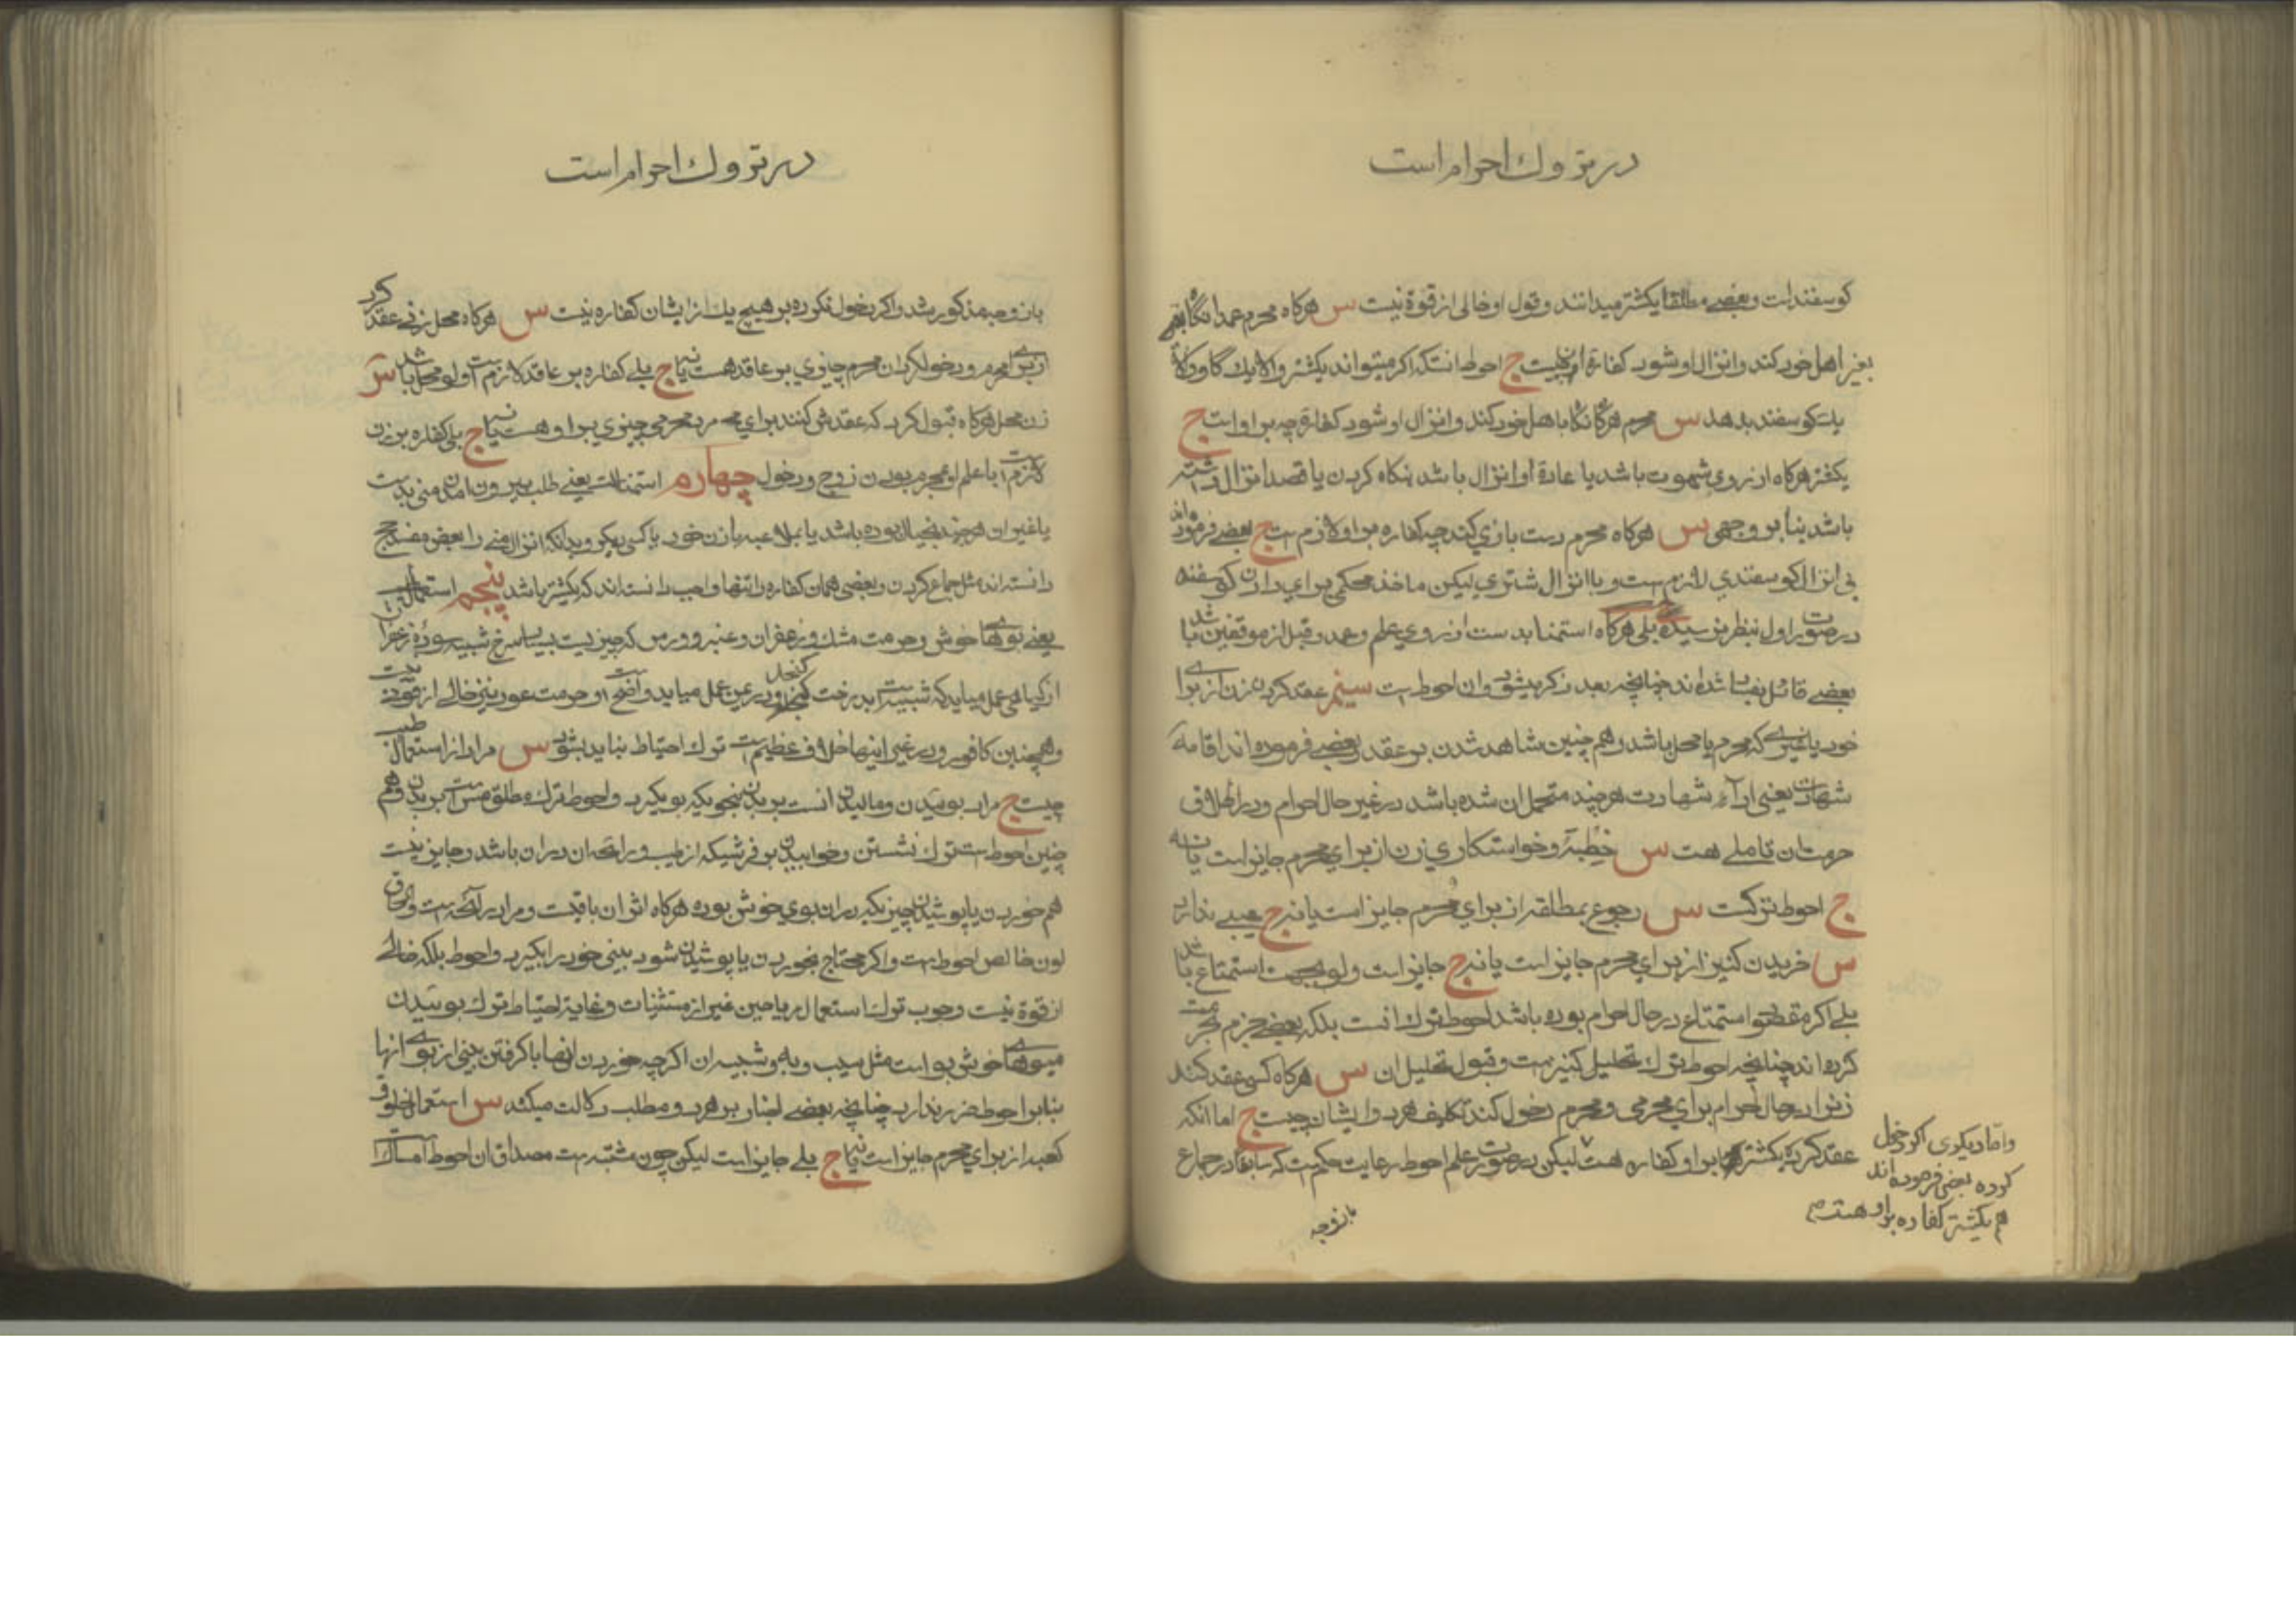 در تروك احرام است
كوسفند است و بعضے مطلقا یكشتر میدانند و قول او خالی از قوة نیست س هركاه محرم عمدا نكاه
بغیر اهل خود كند و انزال او شود كفارة ان چیست ج احوط انستكه اكر میتواند یكشتر و الا یك كاو و الا
یك كوسفند بدهد س محرم هركاه نكاه باهل خود كند و انزال او شود كفاره چه بر او است ج
یكشتر هركاه از روی شهوت باشد یا عادة او انزال باشد بنكاه كردن یا قصد انزال داشته
باشد بنا بر وجهی س هركاه محرم دست بازی كند چه كفاره بر او لازم است ج بعضے فرموده‌اند
بی انزال كوسفندی لازم است و با انزال شتری لیكن ماخذ محكمی برای دادن كوسفند
در صورت اول بنظر نرسیده بلی هركاه استمنا بدست از روی علم و عمد و قبل از موقفین باشد
بعضے قائل بفساد شده‌اند چنانچه بعد ذكر میشود و ان احوط است سیم عقد كردن زن از برای
خود یا غیری كه محرم یا محل باشد و هم چنین شاهد شدن بر عقد و بعضے فرموده‌اند اقامه
شهادت یعنی اداء شهادت هر چند متحمل ان شده باشد در غیر حال احرام و در اطلاق
حرمت ان تاملے هست س خطبه و خواستكاری زن از برای محرم جایز است یا نه
ج احوط تركست س رجوع بمطلقه از برای محرم جایز است یا نه ج عیبے ندارد
س خریدن كنیز از برای محرم جایز است یا نه ج جایز است و لو بجهت استمتاع باشد
بلے اكر مقصود استمتاع در حال احرام بوده باشد احوط ترك انست بلكه بعضے جزم بحرمت
كرده‌اند چنانچه احوط ترك تحلیل كنیز است و قبول تحلیل ان س هركاه كسی عقد كند
زنی را در حال احرام برای محرمی و محرم دخول كند تكلیف هر دو ایشان چیست ج اما انكه
عقد كرده یكشتر بر او كفاره هست لیكن در صورت علم احوط رعایت حكمیست كه سابقا در جماع
و اما دیكری اكر دخول
كرده بعضی فرموده‌اند
هم یكشتر كفاره بر او هست
بازوجه
در تروك احرام است
بازوجه مذكور شد و اكر دخول نكرده بر هیچ یك از ایشان كفاره نیست س هركاه محل زنی عقد كرد
از برای محرم و دخول كرد ان محرم چیزی بر عاقد هست یا نه ج بلے كفاره بر عاقد لازم است و لو محل باشد س
زن محل هركاه قبول كرد كه عقدش كنند برای محرم چیزی بر او هست یا نه ج بلی كفاره بر زن
لازم است با علم او بمحرم بودن زوج و دخول چهارم استمناست یعنے طلب بیرون امدن منی بدست
یا غیر ان هر چند بخیال بوده باشد یا بملاعبه با زن خود یا كسی دیكر و بدانكه انزال منی را بعضی مفسد حج
دانسته‌اند مثل جماع كردن و بعضی همان كفاره را تنها واجب دانسته‌اند كه یكشتر باشد پنجم استعمال
یعنے بوهای خوش و حرمت مشك و زعفران و عنبر و ورس كه چیزیست بسیار سرخ شبیه بسوده زعفران
از كیاهی بعمل میاید كه شبیه است بدرخت كنجد و در یمن بعمل میاید واضح است و حرمت عود نیز خالے از قوت نیست
و همچنین كافور و در غیر اینها خلاف عظیم است ترك احتیاط نباید بشود س مراد از استعمال طیب
چیست ج مراد بوئیدن و مالیدن انست بر بدن بنحویكه بو بكیرد و احوط ترك مطلق مس است بر بدن و هم
چنین احوط است ترك نشستن و خوابیدن بر فرشیكه از طیب و رائحه ان در ان باشد و جایز نیست
هم خوردن یا پوشیدن چیزیكه در ان بوی خوش بوده هركاه اثر ان باقیست و مراد رائحه است و
لون خالص احوط است و اكر محتاج بخوردن یا پوشیدن شود بینی خود را بكیرد و احوط بلكه خالے
از قوة نیست وجوب ترك استعمال ریاحین غیر از مستثنیات و غایة احتیاط ترك بوئیدن
میوهای خوش بو است مثل سیب و به و شبیه ان اكرچه خوردن انها با كرفتن بینی از بوی انها
بنا بر احوط ضرر ندارد چنانچه بعضے اخبار بر هر دو مطلب دلالت میكند س استعمال خلوق
كعبه از برای محرم جایز است یا نه ج بلے جایز است لیكن چون مشتبه است مصداق ان احوط امساك